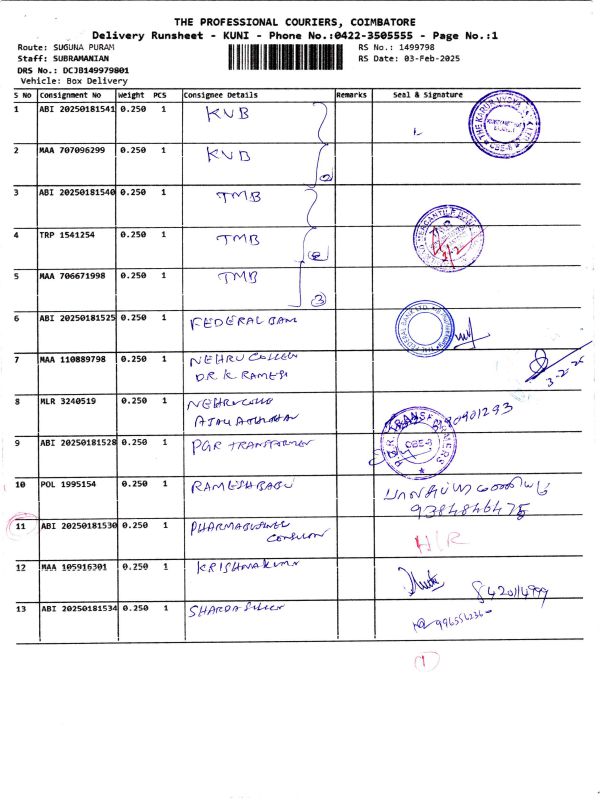 THE PROFESSIONAL COURIERS, COIMBATORE
Delivery Runsheet - KUNI - Phone No.:0422-3505555 - Page No.:1
Route: SUGUNA PURAM RS No.: 1499798
Staff: SUBRAMANIAN RS Date: 03-Feb-2025
DRS No.: DCJB149979801
Vehicle: Box Delivery
S No Consignment No Weight PCS Consignee Details Remarks Seal & Signature
1 ABI 20250181541 0.250 1 KVB
2 MAA 707096299 0.250 1 KVB
2
3 ABI 20250181540 0.250 1 TMB
4 TRP 1541254 0.250 1 TMB
5 MAA 706671998 0.250 1 TMB
3
6 ABI 20250181525 0.250 1 FEDERAL BAN
7 MAA 110889798 0.250 1 NEHRU COLLEGE
DR K RAMESH
3-2-25
8 MLR 3240519 0.250 1 NEHRU
9 ABI 20250181528 0.250 1 PGR TRANSFORMER
P.G.R. TRANSFORMERS
CBE-8
10 POL 1995154 0.250 1 RAMESH BABU
9384846475
11 ABI 20250181530 0.250 1
H/R
12 MAA 105916301 0.250 1 KRISHNAKUMAR
13 ABI 20250181534 0.250 1 SHARDA
1